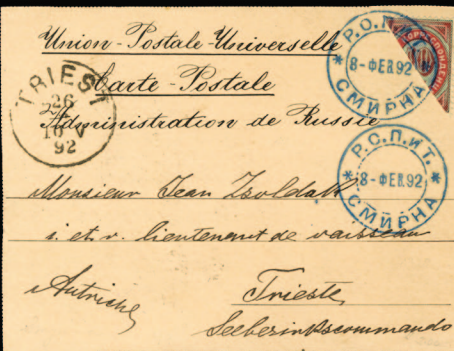 Union-Postale-Universelle
Carte-Postale
Administration de Russie
Р.О.П.и Т.
8-ФЕВ.92
СМИРНА
TRIEST
26
2
10 V
92
Р.О.П.и Т.
8-ФЕВ.92
СМИРНА
Monsieur Jean
i. et r. lieutenant de vaisseau
Autriche
Trieste
Seebezirkscommando